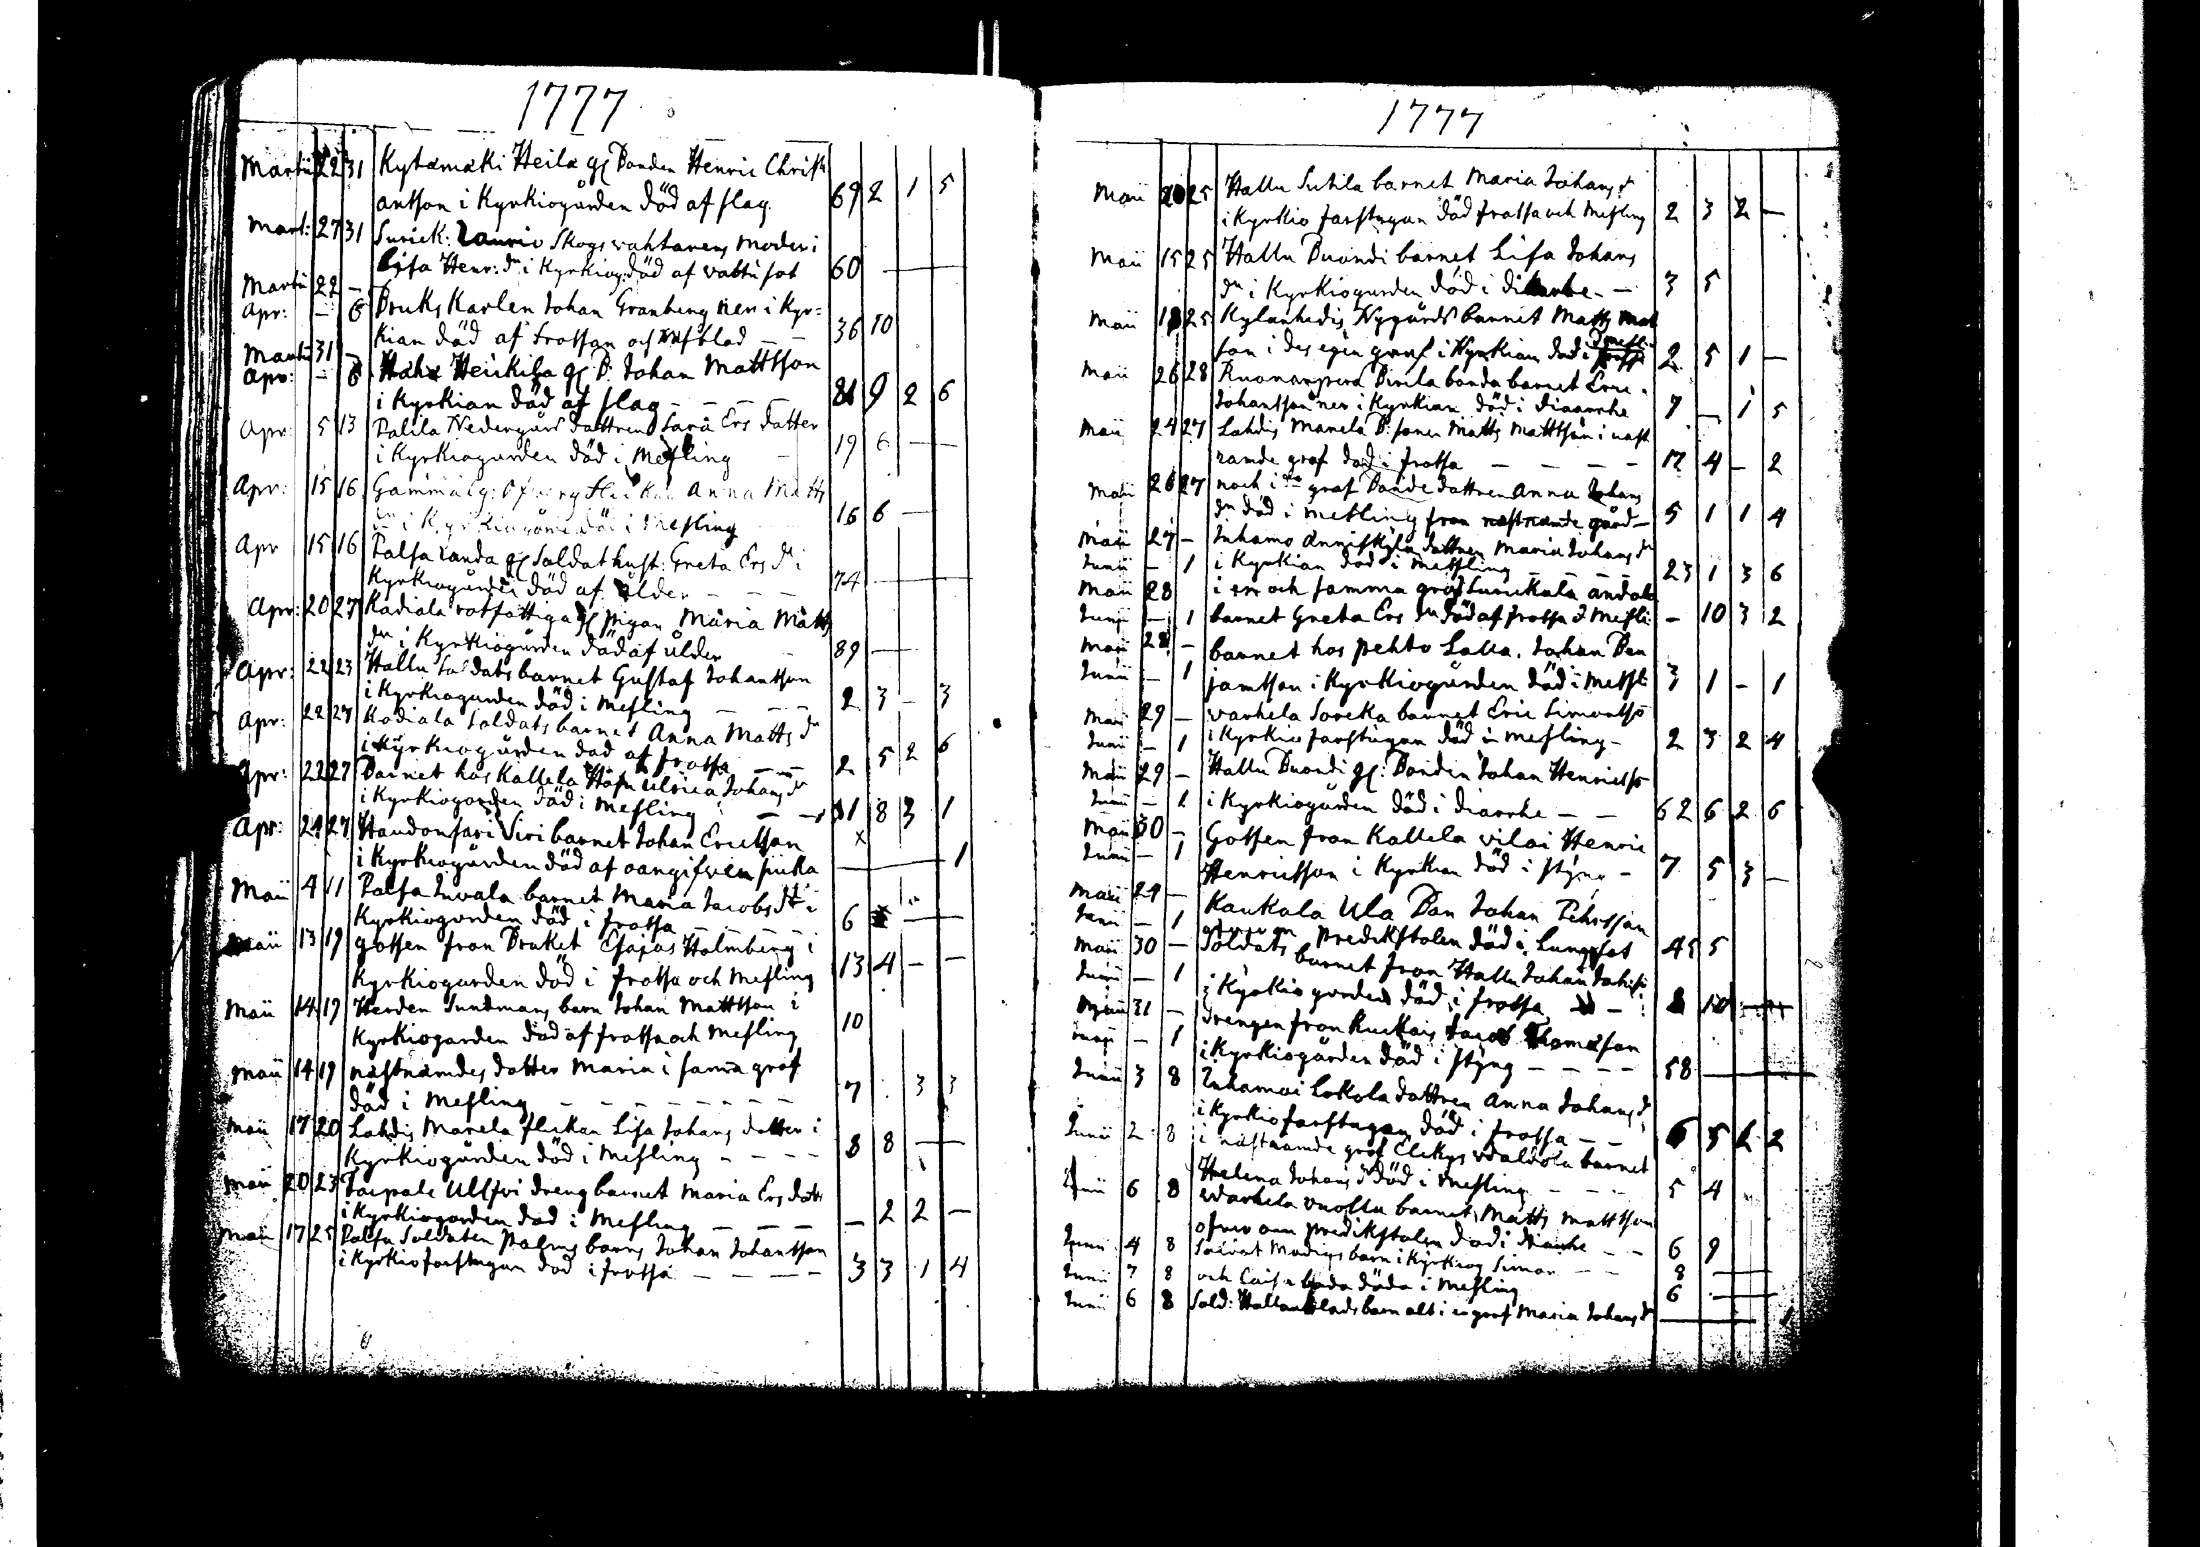 1777
Martii 22 31 Kytamaki Heila gl Bonden Henric Christi
antson i Kyrkiogården död af slag. 69 2 1 5
Mart: 27 31 Skogsvahtarens moder i
Lisa Henr: dr i Kyrkiog: död af vattusot 60 —
Martii 22 —
Apr: — 6 Bruks Karlen Johan Granberg ner i Kyr=
kian död af frossan och — — 36 10
Martii 31 —
Apr: — 6 Heikila gl B: Johan Mattsson
i Kyrkian död af slag — — — 81 9 2 6
Apr: 5 13 Palila Nedergård dattren Sara Ers datter
i Kyrkiogården död i Mesling — 19 6 —
Apr: 15 16 Anna Matts
dr i Kyrkiogård död i Mesling 16 6 —
Apr 15 16 Palsa Randa gl Soldat hust: Greta Ers dr i
Kyrkiogården död af ålder — — — 74 —
Apr: 20 27 Kadiala rotfattiga gl pigan Maria Matts
dr i Kyrkiogården död af ålder — 89 —
Apr: 22 23 Hallu Soldats barnet Gustaf Johansson
i Kyrkiogården död i Mesling — — — 2 3 — 3
Apr: 22 27 Kadiala Soldats barnet Anna Matts dr
i Kyrkiogården död af frossa — — 2 5 2 6
Apr: 22 27 Barnet hos Kallela Ulrica Johans dr
i Kyrkiogorden död i Mesling — 8 3 1
Apr: 24 27 Haudonsari Viri barnet Johan Ericsson
i Kyrkiogården död af oangifven siuka — 1
Maii 4 11 Palsa Juvala barnet Maria Jacobs dr i
Kyrkiogorden död i frossa — — — 6 —
Maii 13 19 gossen fron Bruket Esajas Holmberg i
Kyrkiogarden död i frossa och Mesling 13 4 — —
Maii 14 19 Herden Sundmans barn Johan Mattsson i
Kyrkiogarden död af frossa och Mesling 10
Maii 14 19 nästnämdes dotter Maria i samma graf
död i Mesling — — — — — 7 3 3
Maii 17 20 Lahdis Manela flickan Lisa Johans datter i
Kyrkiogården död i Mesling — — — 8 8 —
Maii 20 23 Taipale Ullsvi dreng barnet Maria Ers datt
i Kyrkiogorden död i Mesling — — — — 2 2 —
Maii 17 25 Palsa Soldaten Palms barns Johan Johansson
i Kyrkio forstugan död i frossa — — — 3 3 1 4
1777
Maii 20 25 Hallu Sutila barnet Maria Johans dr
i Kyrkio farstugan död frossa och Mesling 2 3 2 —
Maii 15 25 Hallu Buondi barnet Lisa Johans
dr i Kyrkiogarden död i — 3 5
Maii 18 25 Kylanhedis Nygårds barnet Matts Mat
son i des egen graf i Kyrkian död i Mesli 2 5 1 —
Maii 26 28 Pirila bonda barnet Eric
Johansson ner i Kyrkian död i diaarrhe 7 — 1 5
Maii 24 27 Lahdis Manela B: sonen Matts Mattsson i nast
namde graf död i frossa — — — — 12 4 — 2
Maii 26 27 noch i graf Bonde dattren Anna Johans
dr död i Mesling fron nastnamde gård — 5 1 1 4
Maii 27 — Inhamo dattren Maria Johans dr
Junii — 1 i Kyrkian död i Messling — — — — 23 1 3 6
Maii 28 i en och samma graf
Junii — 1 barnet Greta Ers dr död af frossa d Mesli: — 10 3 2
Maii 28 — barnet hos Pehto Lalla. Johan Ben
Junii — 1 jamsson i Kyrkiogården död i Messli: 3 1 — 1
Maii 29 — varhela Soreka barnet Eric Simonsso
Junii — 1 i Kyrkio farstugan död i mesling — 2 3 2 4
Maii 29 — Hallu Buondi gl: Bonden Johan Henricsso
Junii — 1 i Kyrkiogården död i diaarrhe — — 62 6 2 6
Maii 30 — Gossen fron Kallela vilai Henric
Junii — 1 Henricsson i Kyrkian död i styng — 7 5 3 —
Maii 29 — Kaukala Ula Bon Johan Pehrsson
Junii — 1 predikstolen död i Lungsot 45 5
Maii 30 — Soldats barnet fron Hallu Johan
Junii — 1 i Kyrkio gorden död i frossa — 10
Maii 31 — drengen fron Jacob Thomasson
Junii — 1 i Kyrkiogården död i styng — — — — 58 —
Junii 3 8 Inhamoi Lokola dattren Anna Johans dr
i Kyrkio farstugan död i frossa — — 6 5 2 2
Junii 2 8 i nästnamde graf barnet
Helena Johans dr död i Mesling — — — 5 4
Junii 6 8 Warhela vuollu barnet Matts Mattson
ofver om predikstolen död i diaarrhe — — 6 9
Junii 4 8 Soldat Modigs barn i Kyrkiog Simon — — 8 —
Junii 7 8 och Caisa bada döda i Mesling 6 —
Junii 6 8 Sold: barn alt i en graf Maria Johans dr — 1